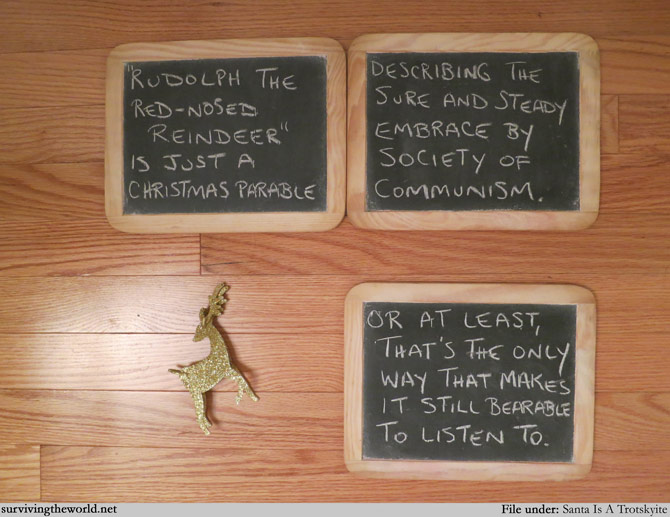 "RUDOLPH THE
RED-NOSED
REINDEER"
IS JUST A
CHRISTMAS PARABLE
DESCRIBING THE
SURE AND STEADY
EMBRACE BY
SOCIETY OF
COMMUNISM.
OR AT LEAST,
THAT'S THE ONLY
WAY THAT MAKES
IT STILL BEARABLE
TO LISTEN TO.
survivingtheworld.net
File under: Santa Is A Trotskyite